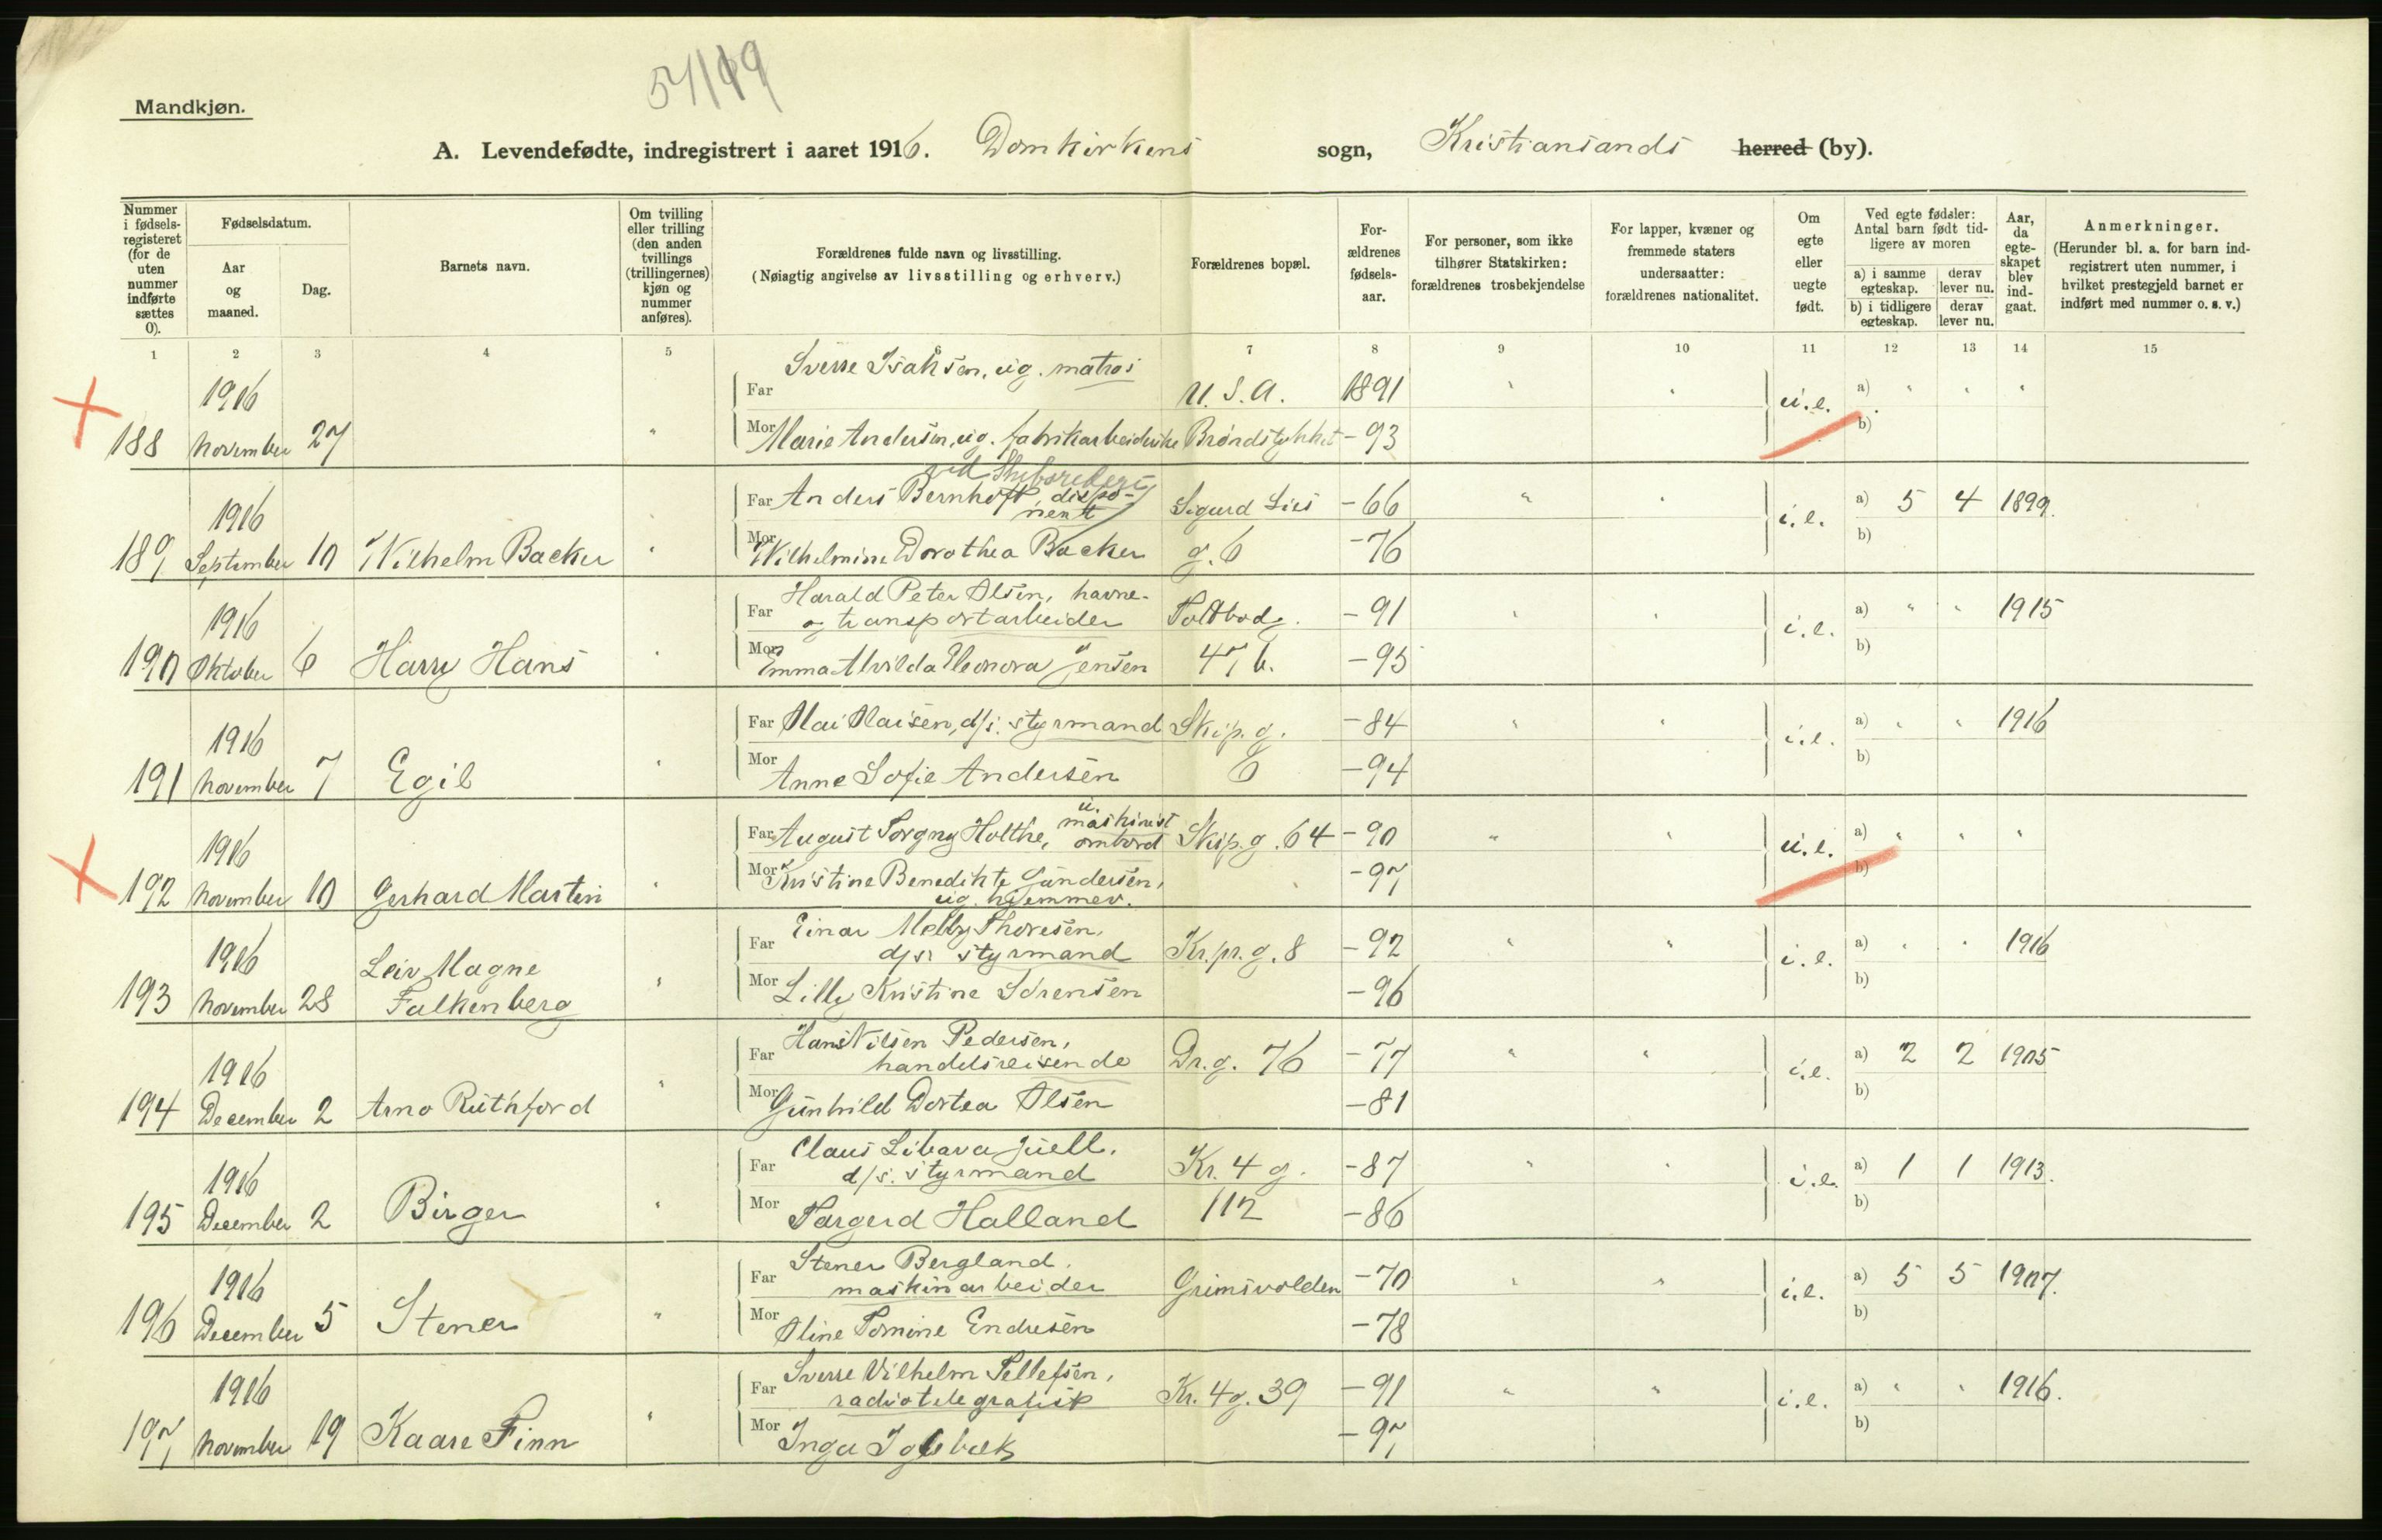 54/199
Mandkjøn.
A. Levendefødte, indregistrert i aaret 1916. Domkirkens sogn, Kristiansands herred (by).
Nummer i fødsels-registeret (for de uten nummer indførte sættes 0).
Fødselsdatum.
Aar og maaned.
Dag.
Barnets navn.
Om tvilling eller trilling (den anden tvillings (trillingernes) kjøn og nummer anføres).
Forældrenes fulde navn og livsstilling.
(Nøiagtig angivelse av livsstilling og erhverv.)
Forældrenes bopæl.
For-ældrenes fødsels-aar.
For personer, som ikke tilhører Statskirken: forældrenes trosbekjendelse
For lapper, kvæner og fremmede staters undersaatter: forældrenes nationalitet.
Om egte eller uegte født.
Ved egte fødsler: Antal barn født tid-ligere av moren
a) i samme egteskap.
derav lever nu.
b) i tidligere egteskap.
derav lever nu.
Aar, da egte-skapet blev ind-gaat.
Anmerkninger.
(Herunder bl. a. for barn ind-registrert uten nummer, i hvilket prestegjeld barnet er indført med nummer o. s. v.)
1 2 3 4 5 6 7 8 9 10 11 12 13 14 15
Sverre Isaksen, ug. matros
1916 Far U.S.A. 1891 " " u.e. a) " " "
188 November 27 " Mor Marie Andersen, ug. fabrikarbeiderske Brøndstykket -93 b)
1916 Far Anders Bernhoft, dispo-nent Sigurd Lies -66 " " i.e. a) 5 4 1899.
189 September 10 Wilhelm Backer " Mor Wilhelmine Dorothea Backer g. 6 -76 b)
Harald Peter Olsen, havne-
1916 Far og transportarbeider Toldbodg. -91 " " i.e. a) " " 1915
190 Oktober 6 Harry Hans " Mor Emma Alvilda Eleonora Jensen 47 b. -95 b)
1916 Far Olai Olaisen, d/s. styrmand Skip. g. -84 " " i.e. a) " " 1916
191 November 7 Egil " Mor Anne Sofie Andersen 6 -94 b)
u. maskinist
1916 Far August Torgny Holthe, ombord Skip. g. 64 -90 " " u.e. a) " " "
192 November 10 Gerhard Martin " Mor Kristine Benedikte Gundersen, -97 b)
ug. hjemmev.
Einar Melby Thoresen,
1916 Far d/s. styrmand Kr. pr. g. 8 -92 " " i.e. a) " " 1916
193 November 28 Leiv Magne Falkenberg " Mor Lilly Kristine Sörensen -96 b)
Hans Nilsen Pedersen,
1916 Far handelsreisende Dr. g. 76 -77 " " i.e. a) 2 2 1905
194 December 2 Arno Ruthford " Mor Gunhild Dortea Olsen -81 b)
Claus Libava Juell.
1916 Far d/s. styrmand Kr. 4 g. -87 " " i.e. a) 1 1 1913.
195 December 2 Birger " Mor Targerd Halland 112 -86 b)
Stener Bergland,
1916 Far maskinarbeider Grimsvolden -70 " " i.e. a) 5 5 1907.
196 December 5 Stener " Mor Oline Tomine Endresen -78 b)
Sverre Vilhelm Tellefsen,
1916 Far radiotelegrafist Kr. 4 g. 39 -91 " " i.e. a) " " 1916.
197 November 19 Kaare Finn " Mor Inga Iglebæk -97 b)